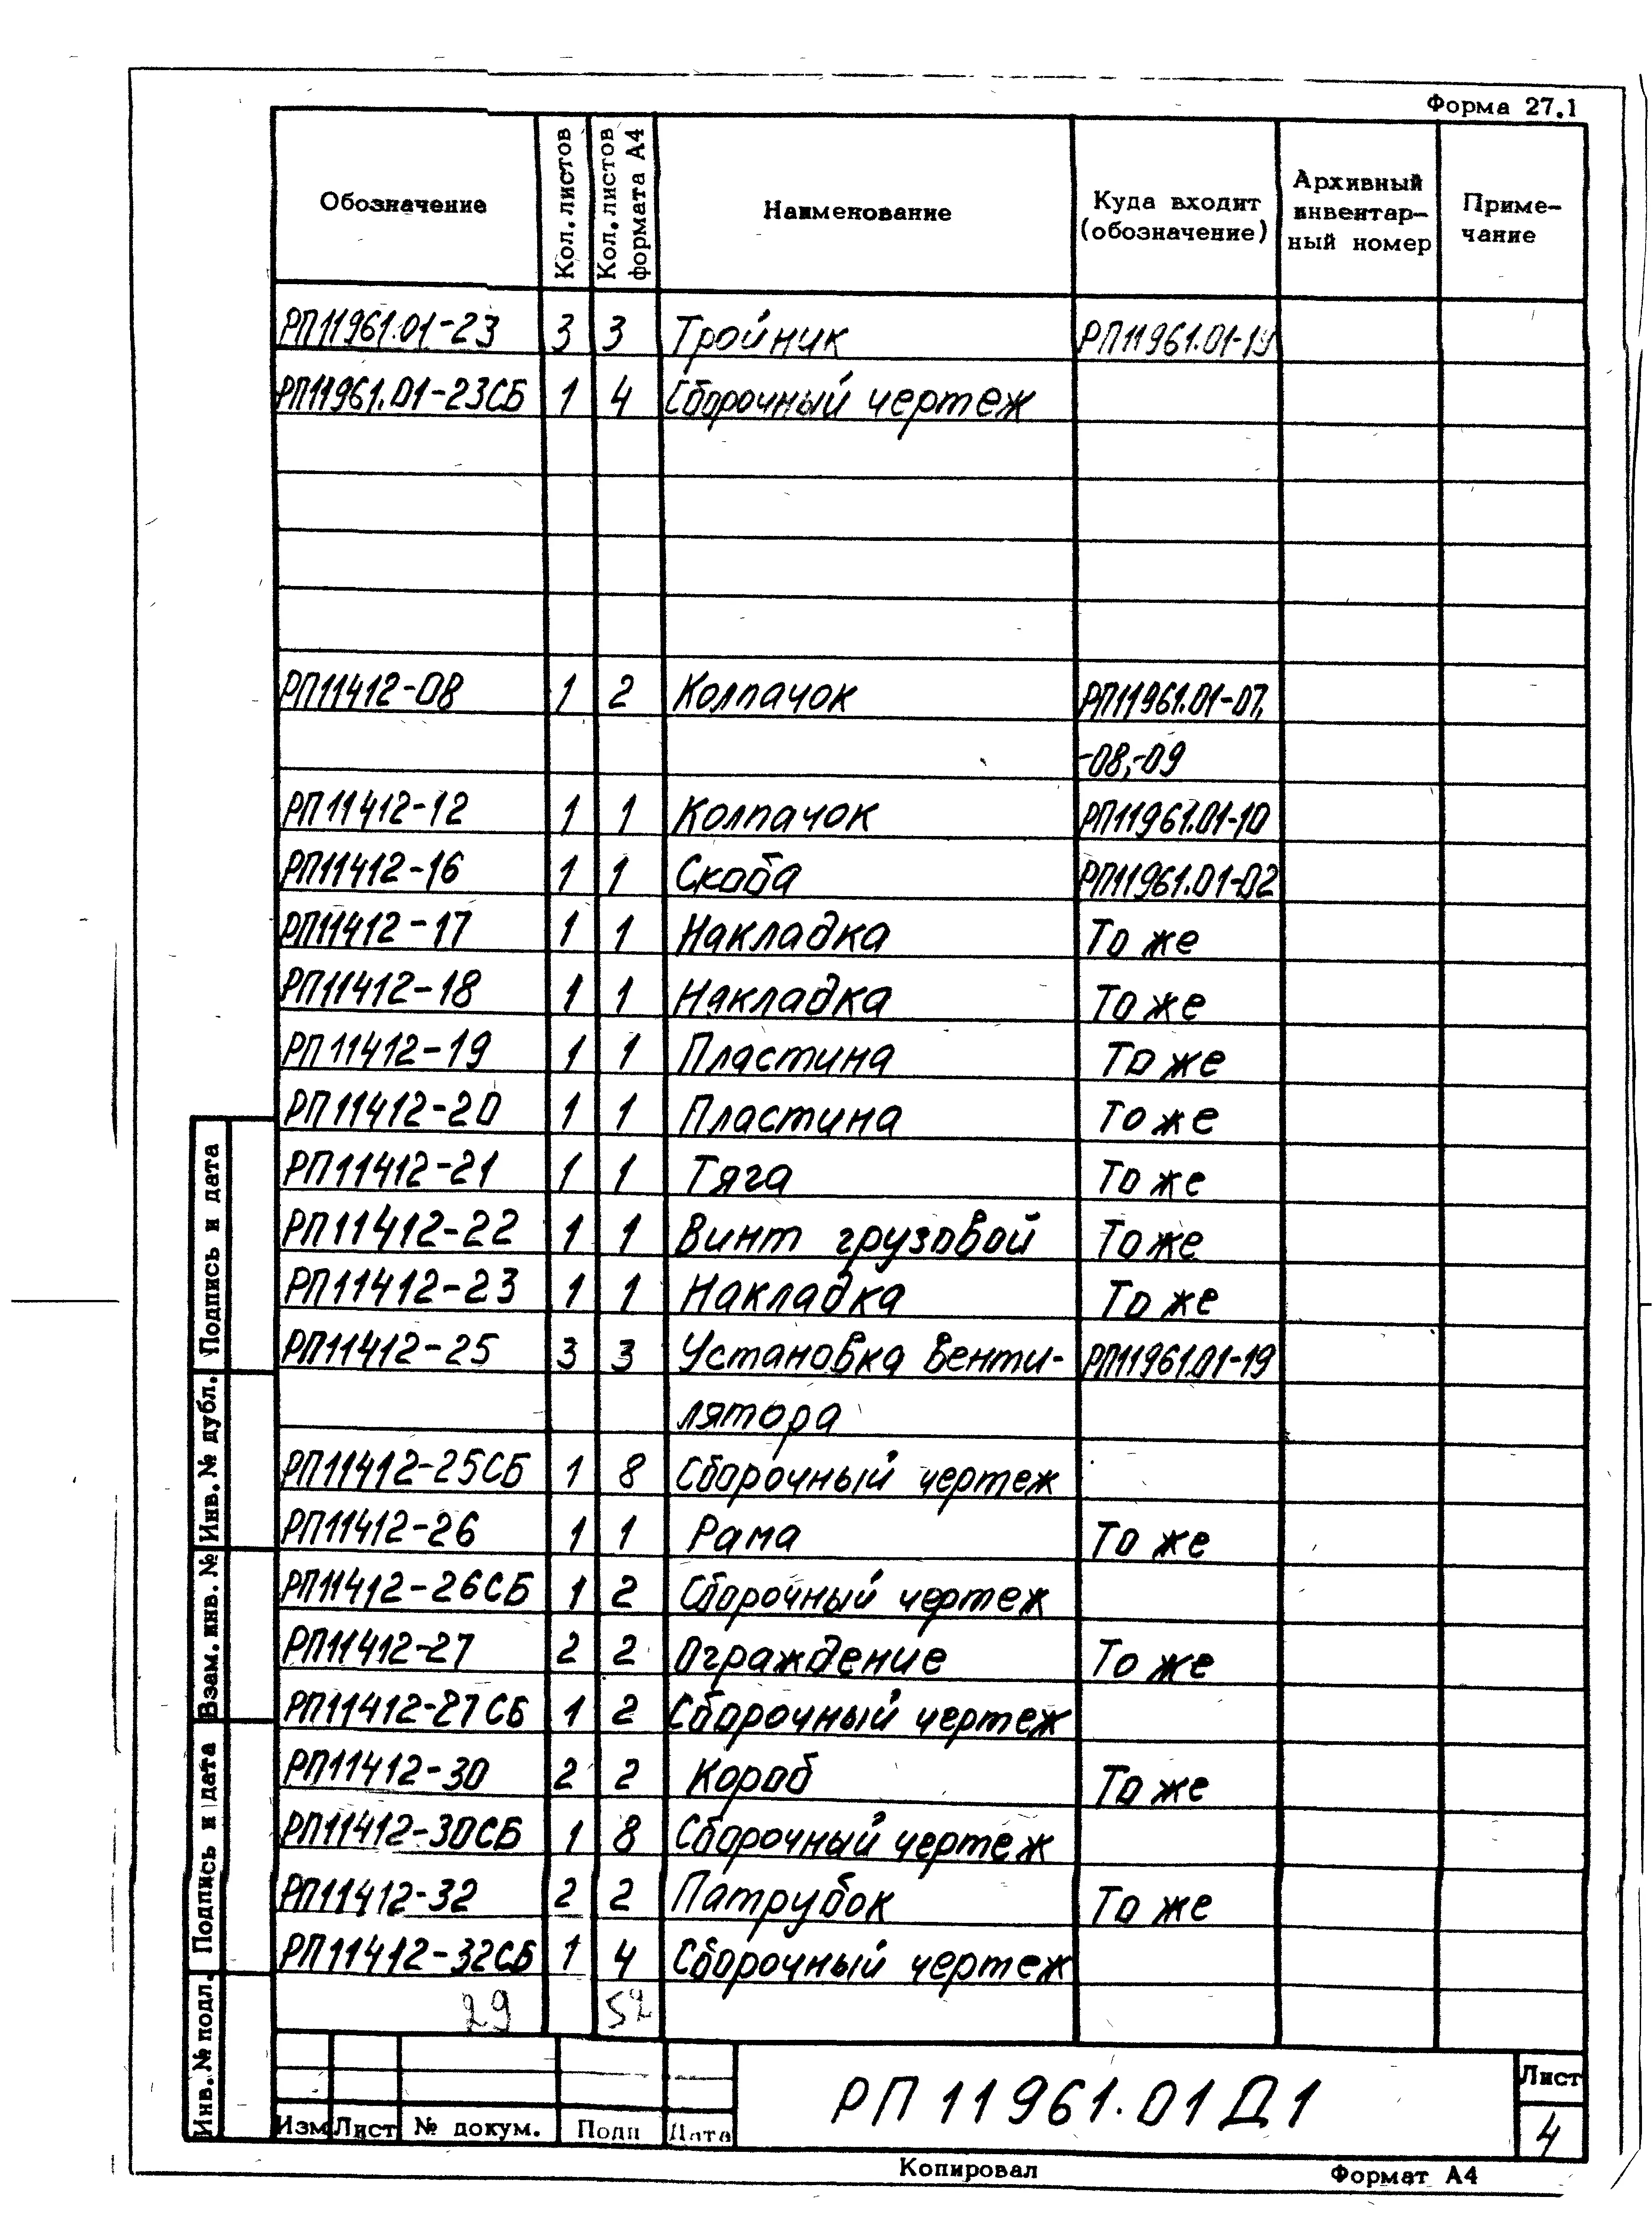 Форма 27.1
Обозначение Кол. листов Кол. листов формата А4 Наименование Куда входит (обозначение) Архивный инвентар- ный номер Приме- чание
РП11961.01-23 3 3 Тройник
РП11961.01-23СБ 1 4 Сборочный чертеж
РП11412-08 1 2 Колпачок РП11961.01-07,
-08,-09
РП11412-12 1 1 Колпачок РП11961.01-10
РП11412-16 1 1 Скоба РП11961.01-02
РП11412-17 1 1 Накладка То же
РП11412-18 1 1 Накладка То же
РП11412-19 1 1 Пластина То же
РП11412-20 1 1 Пластина То же
РП11412-21 1 1 Тяга То же
РП11412-22 1 1 Винт грузовой То же
РП11412-23 1 1 Накладка То же
РП11412-25 3 3 Установка венти- РП11961.01-19
лятора
РП11412-25СБ 1 8 Сборочный чертеж
РП11412-26 1 1 Рама То же
РП11412-26СБ 1 2 Сборочный чертеж
РП11412-27 2 2 Ограждение То же
РП11412-27СБ 1 2 Сборочный чертеж
РП11412-30 2 2 Короб То же
РП11412-30СБ 1 8 Сборочный чертеж
РП11412-32 2 2 Патрубок То же
РП11412-32СБ 1 4 Сборочный чертеж
29
Подпись и дата
Инв. № дубл.
Взам. инв. №
Подпись и дата
Инв. № подл.
Изм Лист № докум. Подп Дата
РП 11961.01Д1
Лист
4
Копировал Формат А4